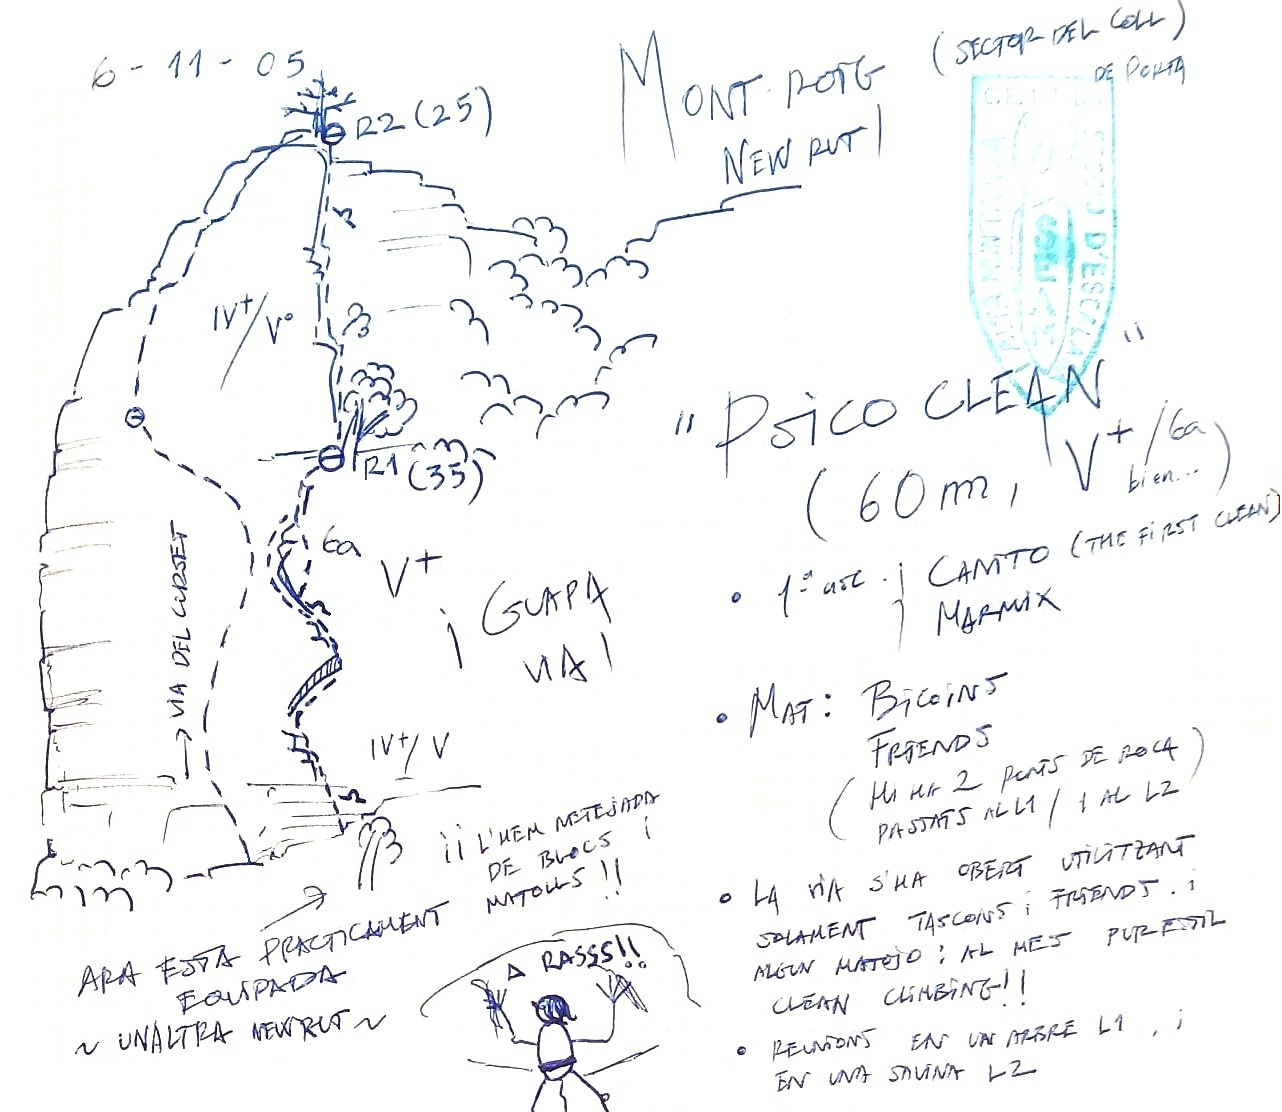 6-11-05
R2 (25)
MONT-ROIG
NEW RUT!
(SECTOR DEL COLL)
DE PORTA
IV+/Vº
R1 (35)
6a
V+
¡GUAPA
VIA!
VIA DEL CURSET
IV+/V
"PSICO CLEAN"
(60m, V+/6a
bien...)
• 1ª asc. CANITO (THE FIRST CLEAN)
MARMIX
• MAT: BICOINS
FRIENDS
(HI HA 2 PONTS DE ROCA
PASSATS AL L1 / 1 AL L2)
• LA VIA S'HA OBERT UTILITZANT
SOLAMENT TASCONS i FRIENDS. i
ALGUN MATOJO; AL MES PUR ESTIL
CLEAN CLIMBING!!
• REUNIONS EN UN ARBRE L1, i
EN UNA SAVINA L2
¡¡L'HEM NETEJADA
DE BLOCS i
MATOLLS!!
ARA ESTA PRACTICAMENT
EQUIPADA
~ UNALTRA NEW RUT ~
RASSS!!